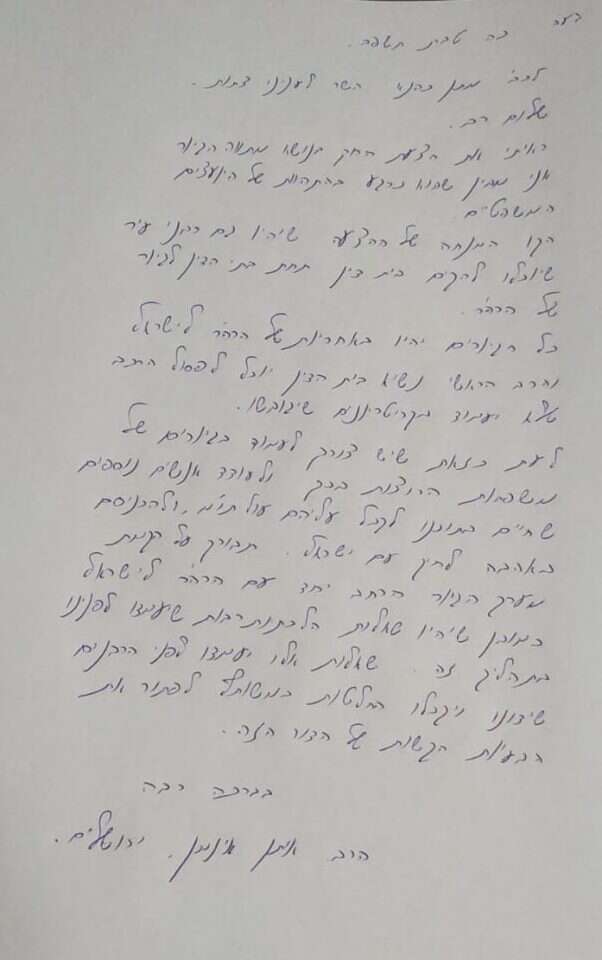 בע״ה כה טבת תשפב.
לכב׳ מתן כהנא השר לעניני דתות.
שלום רב.
ראיתי את הצעת החוק בנושא מתווה הגיור
אני מבין שהוא כרגע בהתהוות של היועצים
המשפטיים
הקו המנחה של ההצעה שיהיו גם רבני עיר
שיוכלו להקים בית דין תחת בתי הדין לגיור
של הרה״ר.
כל הגיורים יהיו באחריות של הרה״ר לישראל
והרב הראשי נשיא בית הדין יוכל לפסול הרכב
שלא יעמוד בקריטריונים שיגובשו.
לעת כזאת שיש צורך לעמוד בגיורים של
משפחות הרוצות בכך ולעודד אנשים נוספים
שחיים בתוכנו לקבל עליהם עול תו״מ, ולהכניסם
באהבה לחיק עם ישראל. תבורך על הקמת
מערך הגיור הרחב יחד עם הרה״ר לישראל
כמובן שיהיו שאלות הלכתיות רבות שיעמדו לפנינו
בתהליך זה. שאלות אלו יעמדו לפני הרבנים
שידונו ויקבלו החלטות במשותף לפתור את
הבעיות הקשות של הדור הזה.
בברכה רבה
הרב איתן איזמן. ירושלים.